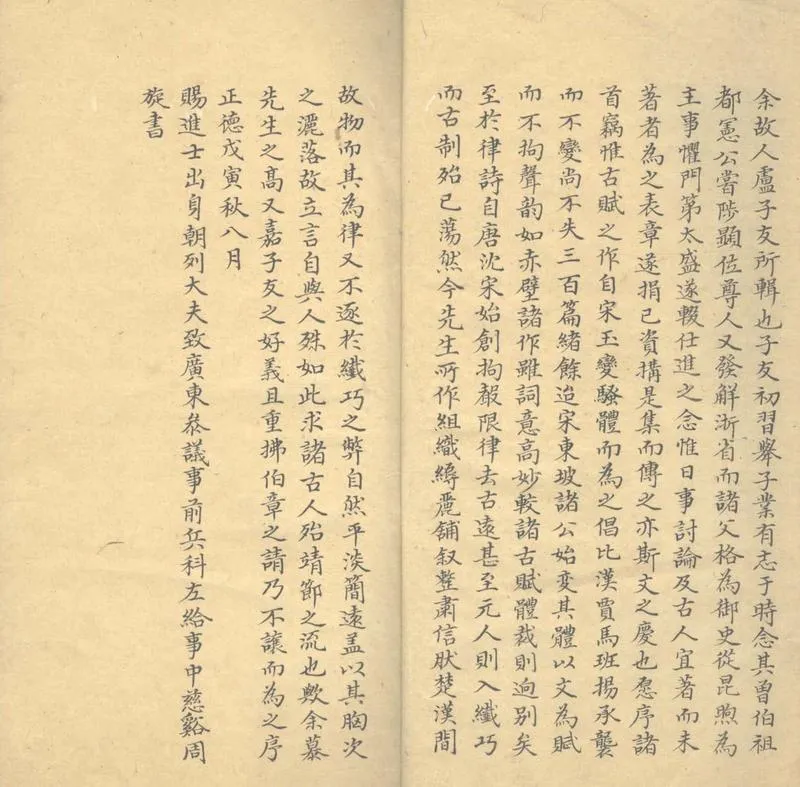 余故人盧子友所輯也子友初習舉子業有志于時念其曽伯祖
都憲公嘗陟顯位尊人又發解浙省而諸父格為御史從昆煦為
主事懼門第太盛遂輟仕進之念惟日事討論及古人宜著而未
著者為之表章遂捐己資搆是集而傳之亦斯文之慶也愿序諸
首竊惟古賦之作自宋玉變騷體而為之倡比漢賈馬班揚承襲
而不變尚不失三百篇緒餘迨宋東坡諸公始変其體以文為賦
而不拘聲韵如赤壁諸作雖詞意高妙較諸古賦體裁則逈别矣
至於律詩自唐沈宋始創拘報限律去古遠甚至元人則入纖巧
而古制殆已蕩然今先生所作組織縟麗鋪叙整肅信肰楚漢間
故物而其為律又不逐於纖巧之弊自然平淡簡遠盖以其胸次
之灑落故立言自與人殊如此求諸古人殆靖節之流也歟余慕
先生之髙又嘉子友之好義且重拂伯章之請乃不讓而為之序
正德戊寅秋八月
賜進士出身朝列大夫致廣東叅議事前兵科左給事中慈谿周
旋書